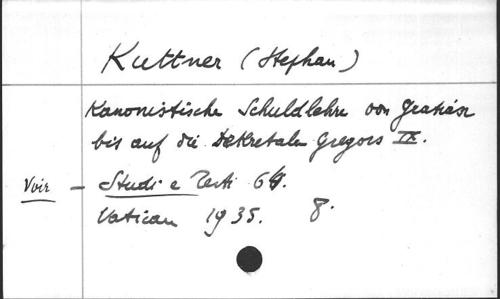 Kuttner (Stephan)
Kanonistische Schuldlehre von Gratian
bis auf die Dekretalen Gregors IX.
Voir - Studi e Testi 64.
Vatican 1935. 8.